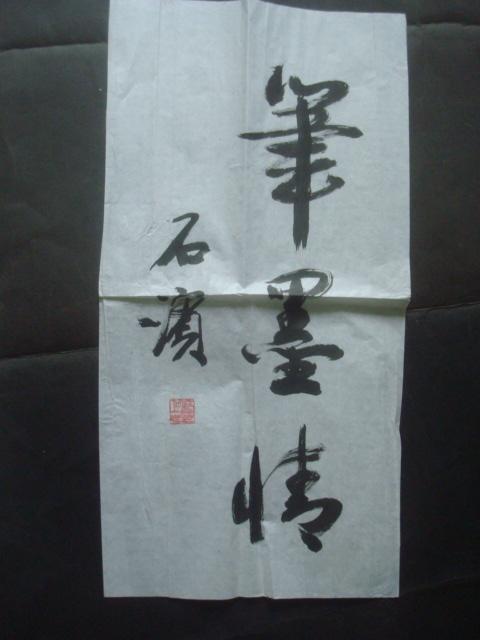 筆墨情
石濱